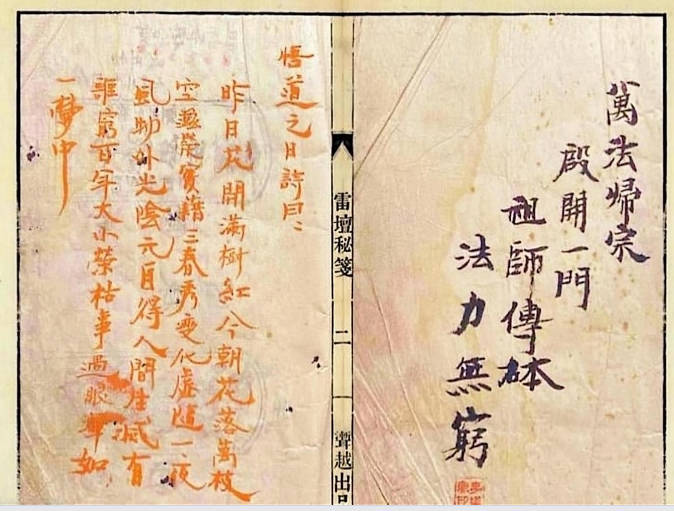 萬法歸宗
啟開一門
祖師傳砵
法力無窮
雷壇秘箋
二
越出品
悟道之日詩曰：
昨日花開滿樹紅今朝花落萬枝
空滋榮實藉三春秀變化虛隨一夜
風物外光陰元自得人間生滅有
誰窮百年大小榮枯事過眼渾如
一夢中